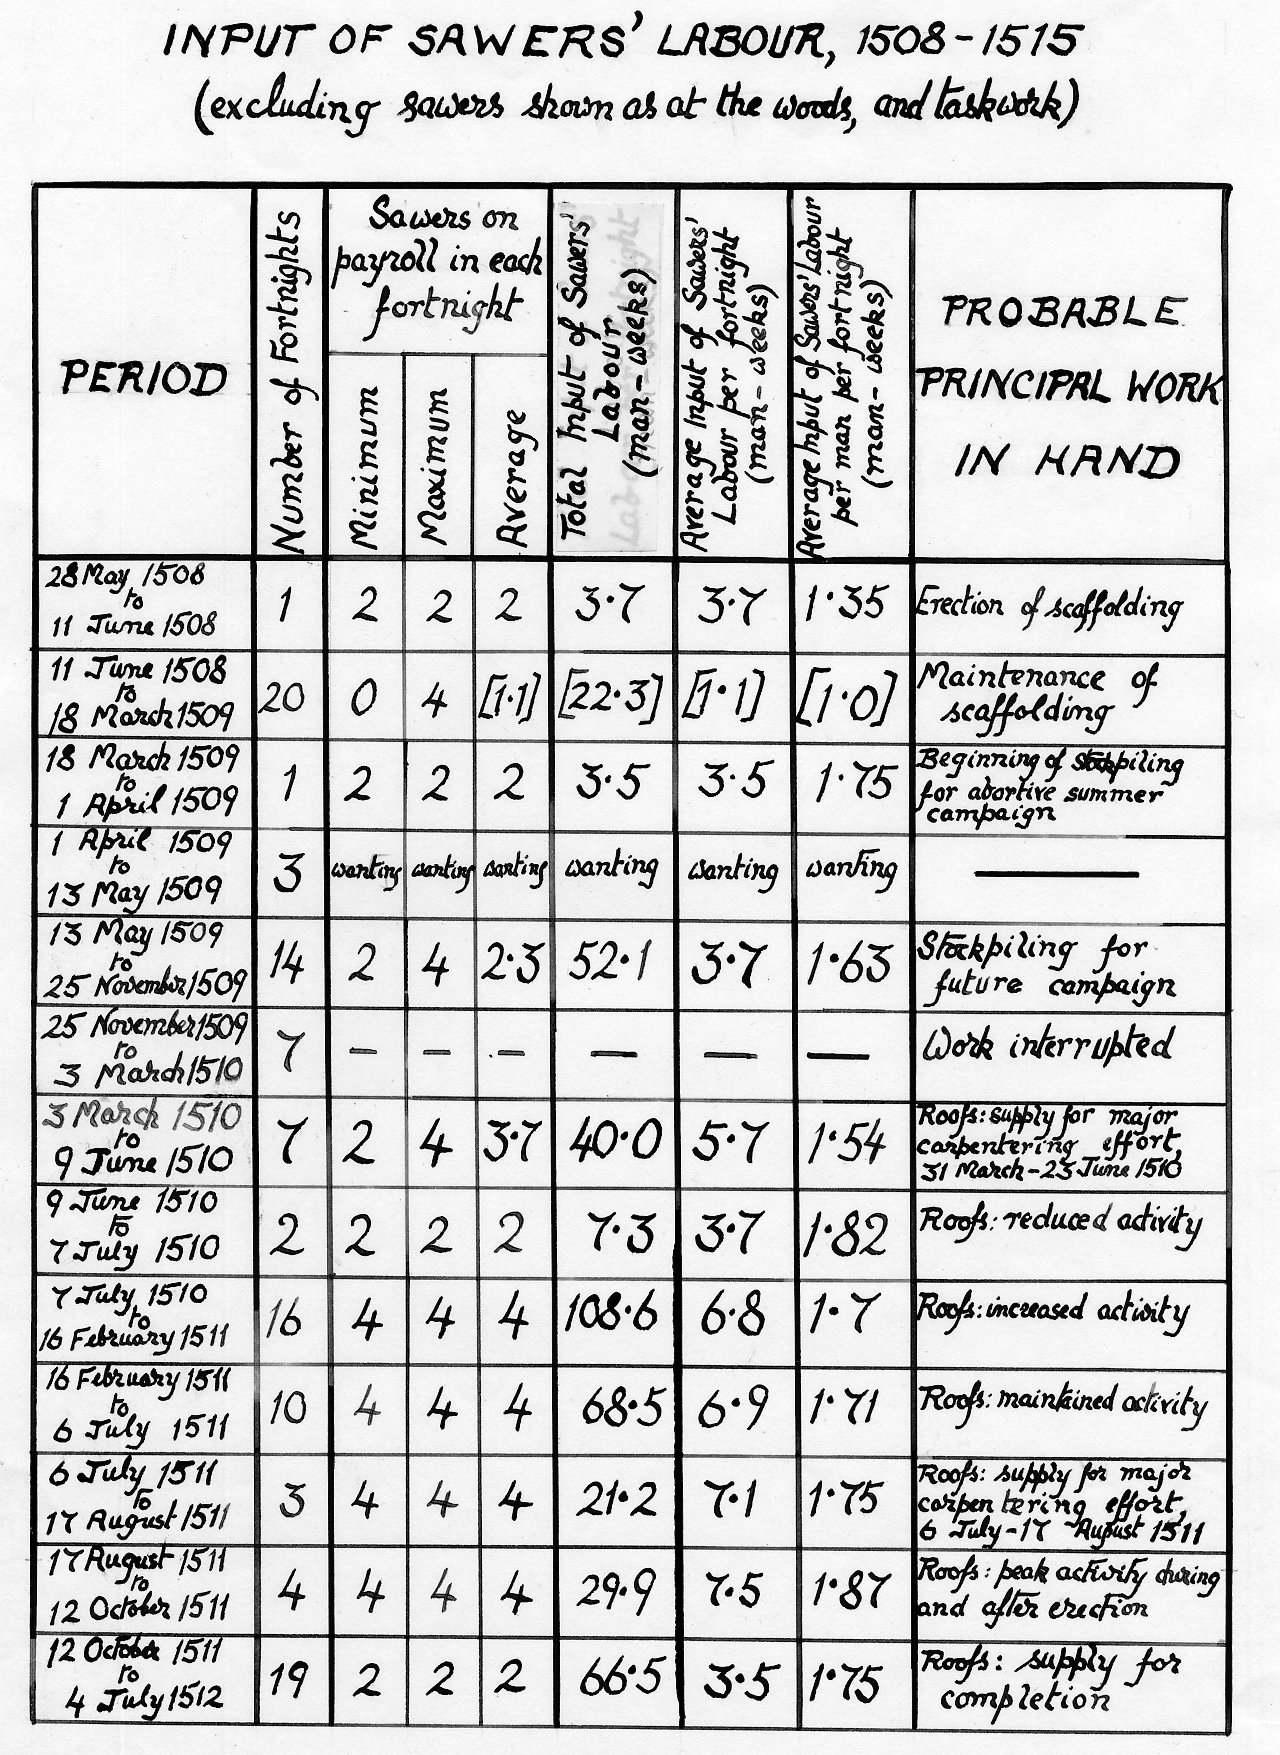 INPUT OF SAWERS' LABOUR, 1508-1515
(excluding sawers shown as at the woods, and taskwork)
PERIOD
Number of Fortnights
Sawers on
payroll in each
fortnight
Minimum
Maximum
Average
Total Input of Sawers'
Labour
(man-weeks)
Average Input of Sawers'
Labour per fortnight
(man-weeks)
Average Input of Sawers' Labour
per man per fortnight
(man-weeks)
PROBABLE
PRINCIPAL WORK
IN HAND
28 May 1508
to
11 June 1508
1 2 2 2 3·7 3·7 1·35
Erection of scaffolding
11 June 1508
to
18 March 1509
20 0 4 [1·1] [22·3] [1·1] [1·0]
Maintenance of
scaffolding
18 March 1509
to
1 April 1509
1 2 2 2 3·5 3·5 1·75
Beginning of stockpiling
for abortive summer
campaign
1 April 1509
to
13 May 1509
3 wanting wanting wanting wanting wanting wanting —
13 May 1509
to
25 November 1509
14 2 4 2·3 52·1 3·7 1·63
Stockpiling for
future campaign
25 November 1509
to
3 March 1510
7 – – – — — —
Work interrupted
3 March 1510
to
9 June 1510
7 2 4 3·7 40·0 5·7 1·54
Roofs: supply for major
carpentering effort,
31 March-23 June 1510
9 June 1510
to
7 July 1510
2 2 2 2 7·3 3·7 1·82
Roofs: reduced activity
7 July 1510
to
16 February 1511
16 4 4 4 108·6 6·8 1·7
Roofs: increased activity
16 February 1511
to
6 July 1511
10 4 4 4 68·5 6·9 1·71
Roofs: maintained activity
6 July 1511
to
17 August 1511
3 4 4 4 21·2 7·1 1·75
Roofs: supply for major
carpentering effort,
6 July-17 August 1511
17 August 1511
to
12 October 1511
4 4 4 4 29·9 7·5 1·87
Roofs: peak activity during
and after erection
12 October 1511
to
4 July 1512
19 2 2 2 66·5 3·5 1·75
Roofs: supply for
completion